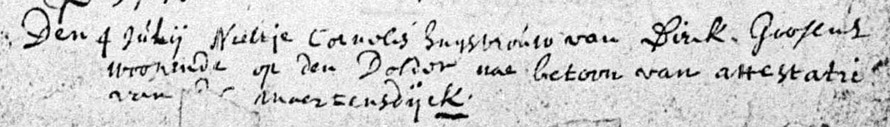 Den 4 Julij Neeltje Cornelis huijsvrouw van Dirk
woonende op den Dolder nae betoon van attestatie
van Maertensdijck.